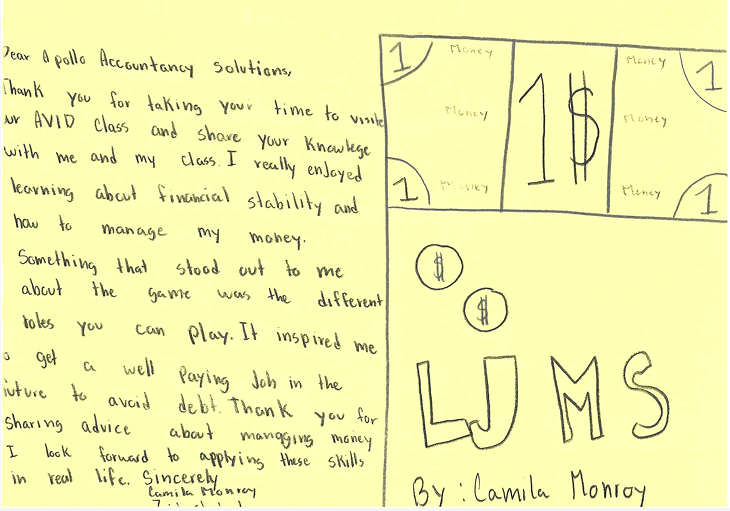 Dear Apollo Accountancy Solutions,
Thank you for taking your time to visite
our AVID Class and share your Knowlege
with me and my class. I really enjoyed
learning about financial stability and
how to manage my money.
Something that stood out to me
about the game was the different
roles you can play. It inspired me
to get a well paying Job in the
future to avoid debt. Thank you for
sharing advice about managing money
I look forward to applying these skills
in real life. Sincerely
Camila Monroy
1 Money Money 1
Money 1$ Money
1 Money Money 1
$
$
LJMS
By: Camila Monroy